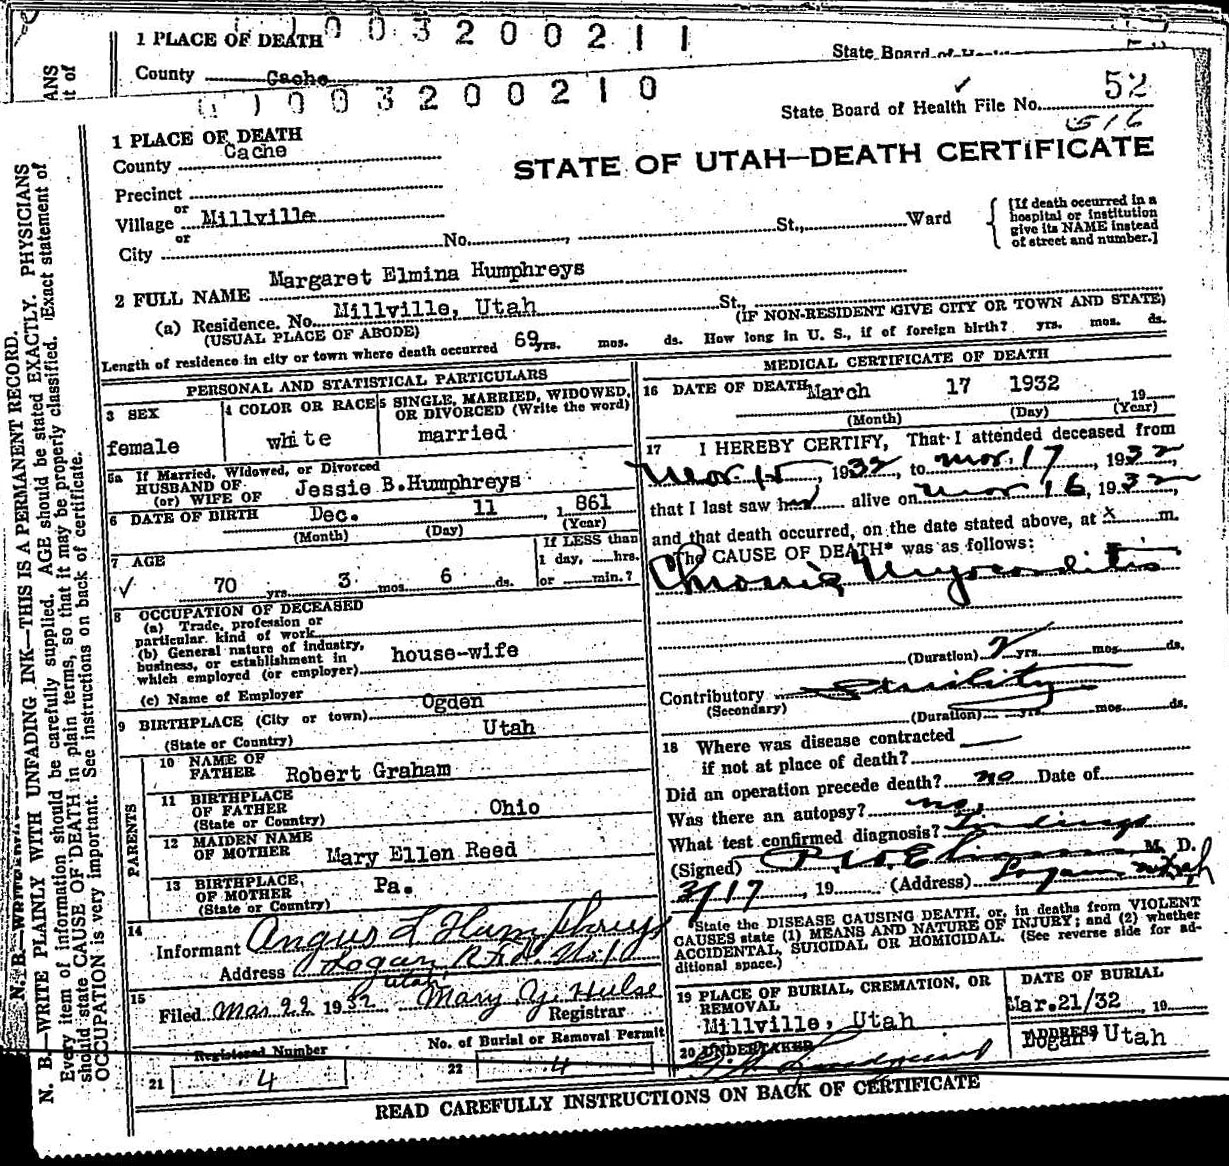 1 PLACE OF DEATH 0 0 3 2 0 0 2 1 1
State Board of Health
County Cache
0 0 3 2 0 0 2 1 0
State Board of Health File No. 52
516
1 PLACE OF DEATH
County Cache
STATE OF UTAH—DEATH CERTIFICATE
Precinct
or
Village Millville
or
City No. , St., Ward
[If death occurred in a
hospital or institution
give its NAME instead
of street and number.]
2 FULL NAME Margaret Elmina Humphreys
(a) Residence. No. Millville, Utah St.,
(USUAL PLACE OF ABODE) (IF NON-RESIDENT GIVE CITY OR TOWN AND STATE)
Length of residence in city or town where death occurred 69 yrs. mos. ds. How long in U. S., if of foreign birth? yrs. mos. ds.
PERSONAL AND STATISTICAL PARTICULARS
3 SEX
female
4 COLOR OR RACE
white
5 SINGLE, MARRIED, WIDOWED,
OR DIVORCED (Write the word)
married
5a If Married, Widowed, or Divorced
HUSBAND OF
(or) WIFE OF Jessie B.Humphreys
6 DATE OF BIRTH Dec. 11 , 1 861
(Month) (Day) (Year)
7 AGE
✓ 70 yrs. 3 mos. 6 ds.
If LESS than
1 day, hrs.
or min.?
8 OCCUPATION OF DECEASED
(a) Trade, profession or
particular kind of work
(b) General nature of industry,
business, or establishment in
which employed (or employer) house-wife
(c) Name of Employer
9 BIRTHPLACE (City or town) Ogden
(State or Country) Utah
PARENTS
10 NAME OF
FATHER Robert Graham
11 BIRTHPLACE
OF FATHER
(State or Country) Ohio
12 MAIDEN NAME
OF MOTHER Mary Ellen Reed
13 BIRTHPLACE,
OF MOTHER
(State or Country) Pa.
14
Informant Angus L Humphreys
Address Logan R.F.D. No. 1
Utah
15
Filed Mar 22 1932 Mary Y. Hulse
Registrar
Registered Number
21 4
No. of Burial or Removal Permit
22 4
MEDICAL CERTIFICATE OF DEATH
16 DATE OF DEATH March 17 1932 , 19
(Month) (Day) (Year)
17 I HEREBY CERTIFY, That I attended deceased from
Mar. 15, 1932, to Mar. 17, 1932,
that I last saw her alive on Mar 16, 1932,
and that death occurred, on the date stated above, at x m.
The CAUSE OF DEATH* was as follows:
Chronic Myocarditis
(Duration) yrs. mos. ds.
Contributory Senility
(Secondary)
(Duration) yrs. mos. ds.
18 Where was disease contracted
if not at place of death?
Did an operation precede death? no Date of
Was there an autopsy? no
What test confirmed diagnosis? findings
(Signed) M. D.
3/17, 19 (Address) Logan Utah
*State the DISEASE CAUSING DEATH, or, in deaths from VIOLENT
CAUSES state (1) MEANS AND NATURE OF INJURY; and (2) whether
ACCIDENTAL, SUICIDAL OR HOMICIDAL. (See reverse side for ad-
ditional space.)
19 PLACE OF BURIAL, CREMATION, OR
REMOVAL
Millville, Utah
DATE OF BURIAL
Mar.21/32 , 19
20 UNDERTAKER
ADDRESS
Logan, Utah
READ CAREFULLY INSTRUCTIONS ON BACK OF CERTIFICATE
N. B.—WRITE PLAINLY WITH UNFADING INK—THIS IS A PERMANENT RECORD.
Every item of information should be carefully supplied. AGE should be stated EXACTLY. PHYSICIANS
should state CAUSE OF DEATH in plain terms, so that it may be properly classified. Exact statement of
OCCUPATION is very important. See instructions on back of certificate.